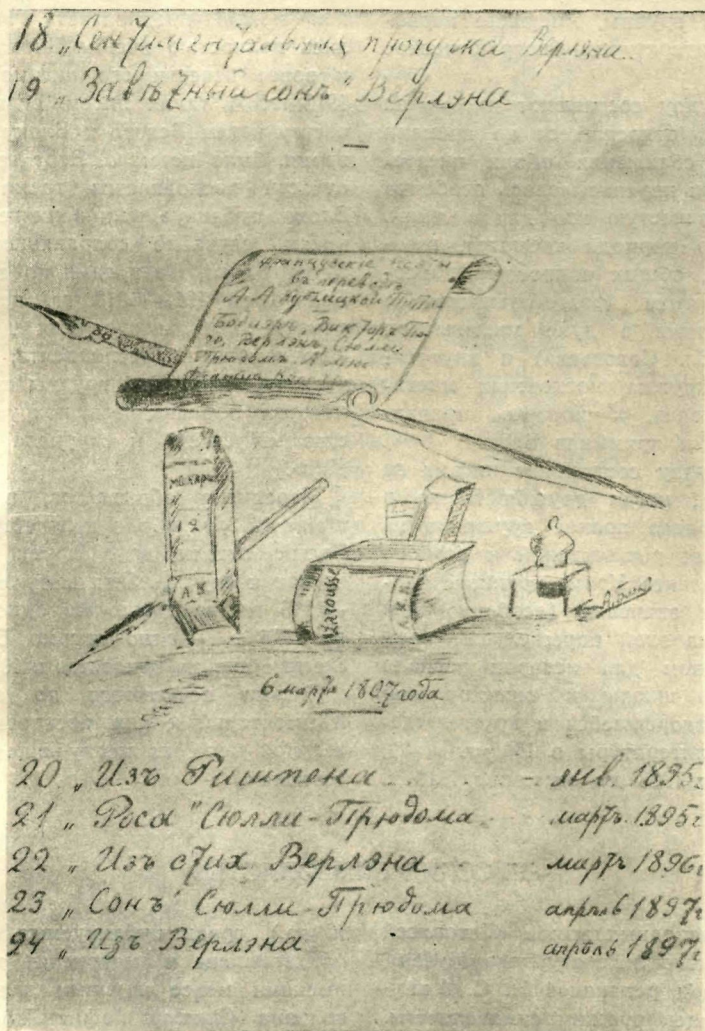 18 „Сентиментальная прогулка Верлэна.
19 „Завѣтный сонъ" Верлэна
французскіе поэты
въ переводѣ
А. А. Кублицкой-Піот
Бодлэръ, Викторъ Гю-
го, Верлэнъ, Сюлли
Прюдомъ, А. Мюс
12
А. К.
LAROUSSE
А. К. П.
А. Блокъ
6 марта 1897 года
20 „Изъ Ришпена - янв. 1895г
21 „Роса" Сюлли-Прюдома - мартъ 1895г
22 „Изъ стих Верлэна - мартъ 1896г
23 „Сонъ" Сюлли-Прюдома апрѣль 1897г
24 „Изъ Верлэна апрѣль 1897г